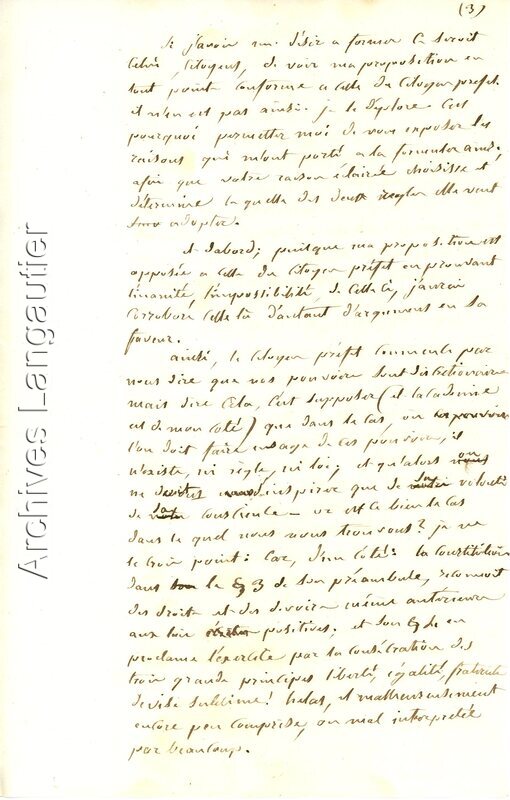 (3)
Si j'avois un désir a former ce seroit
celui, citoyens, de voir ma proposition en
tout point conforme a celle du citoyen préfet.
il n'en est pas ainsi. je le déplore. C'est
pourquoi permettez moi de vous exposer les
raisons qui m'ont porté a la formuler ainsi,
afin que votre raison éclairée choisisse et
détermine la quelle des deux regles elle veut
adopter.
et d'abord; puisque ma proposition est
opposée a celle du citoyen préfet en prouvant
l'inanité, l'impossibilité, de celle ci, j'aurai
corroboré celle là d'autant d'argumens en sa
faveur.
ainsi, le citoyen préfet commence par
nous dire que nos pouvoirs sont discretionnaires
mais dire cela, c'est supposer (et l'académie
est de mon coté) que dans le cas, ou
l'on doit faire usage de ces pouvoirs, il
n'existe, ni règle, ni loi; et qu'alors on
ne doit s'inspirer que de la volonté
de la conscience – or est ce bien le cas
dans le quel nous nous trouvons? je ne
le crois point: car, d'un côté: la constitution
dans le § 3 de son préambule, reconnoit
des droits et des devoirs même anterieurs
aux lois positives; et son § 4 en
proclame l'exercice par la consécration des
trois grands principes liberté, égalité, fraternité
devise sublime! helas, et malheureusement
encore peu comprise, ou mal interpretée
par beaucoup.
Archives Langautier